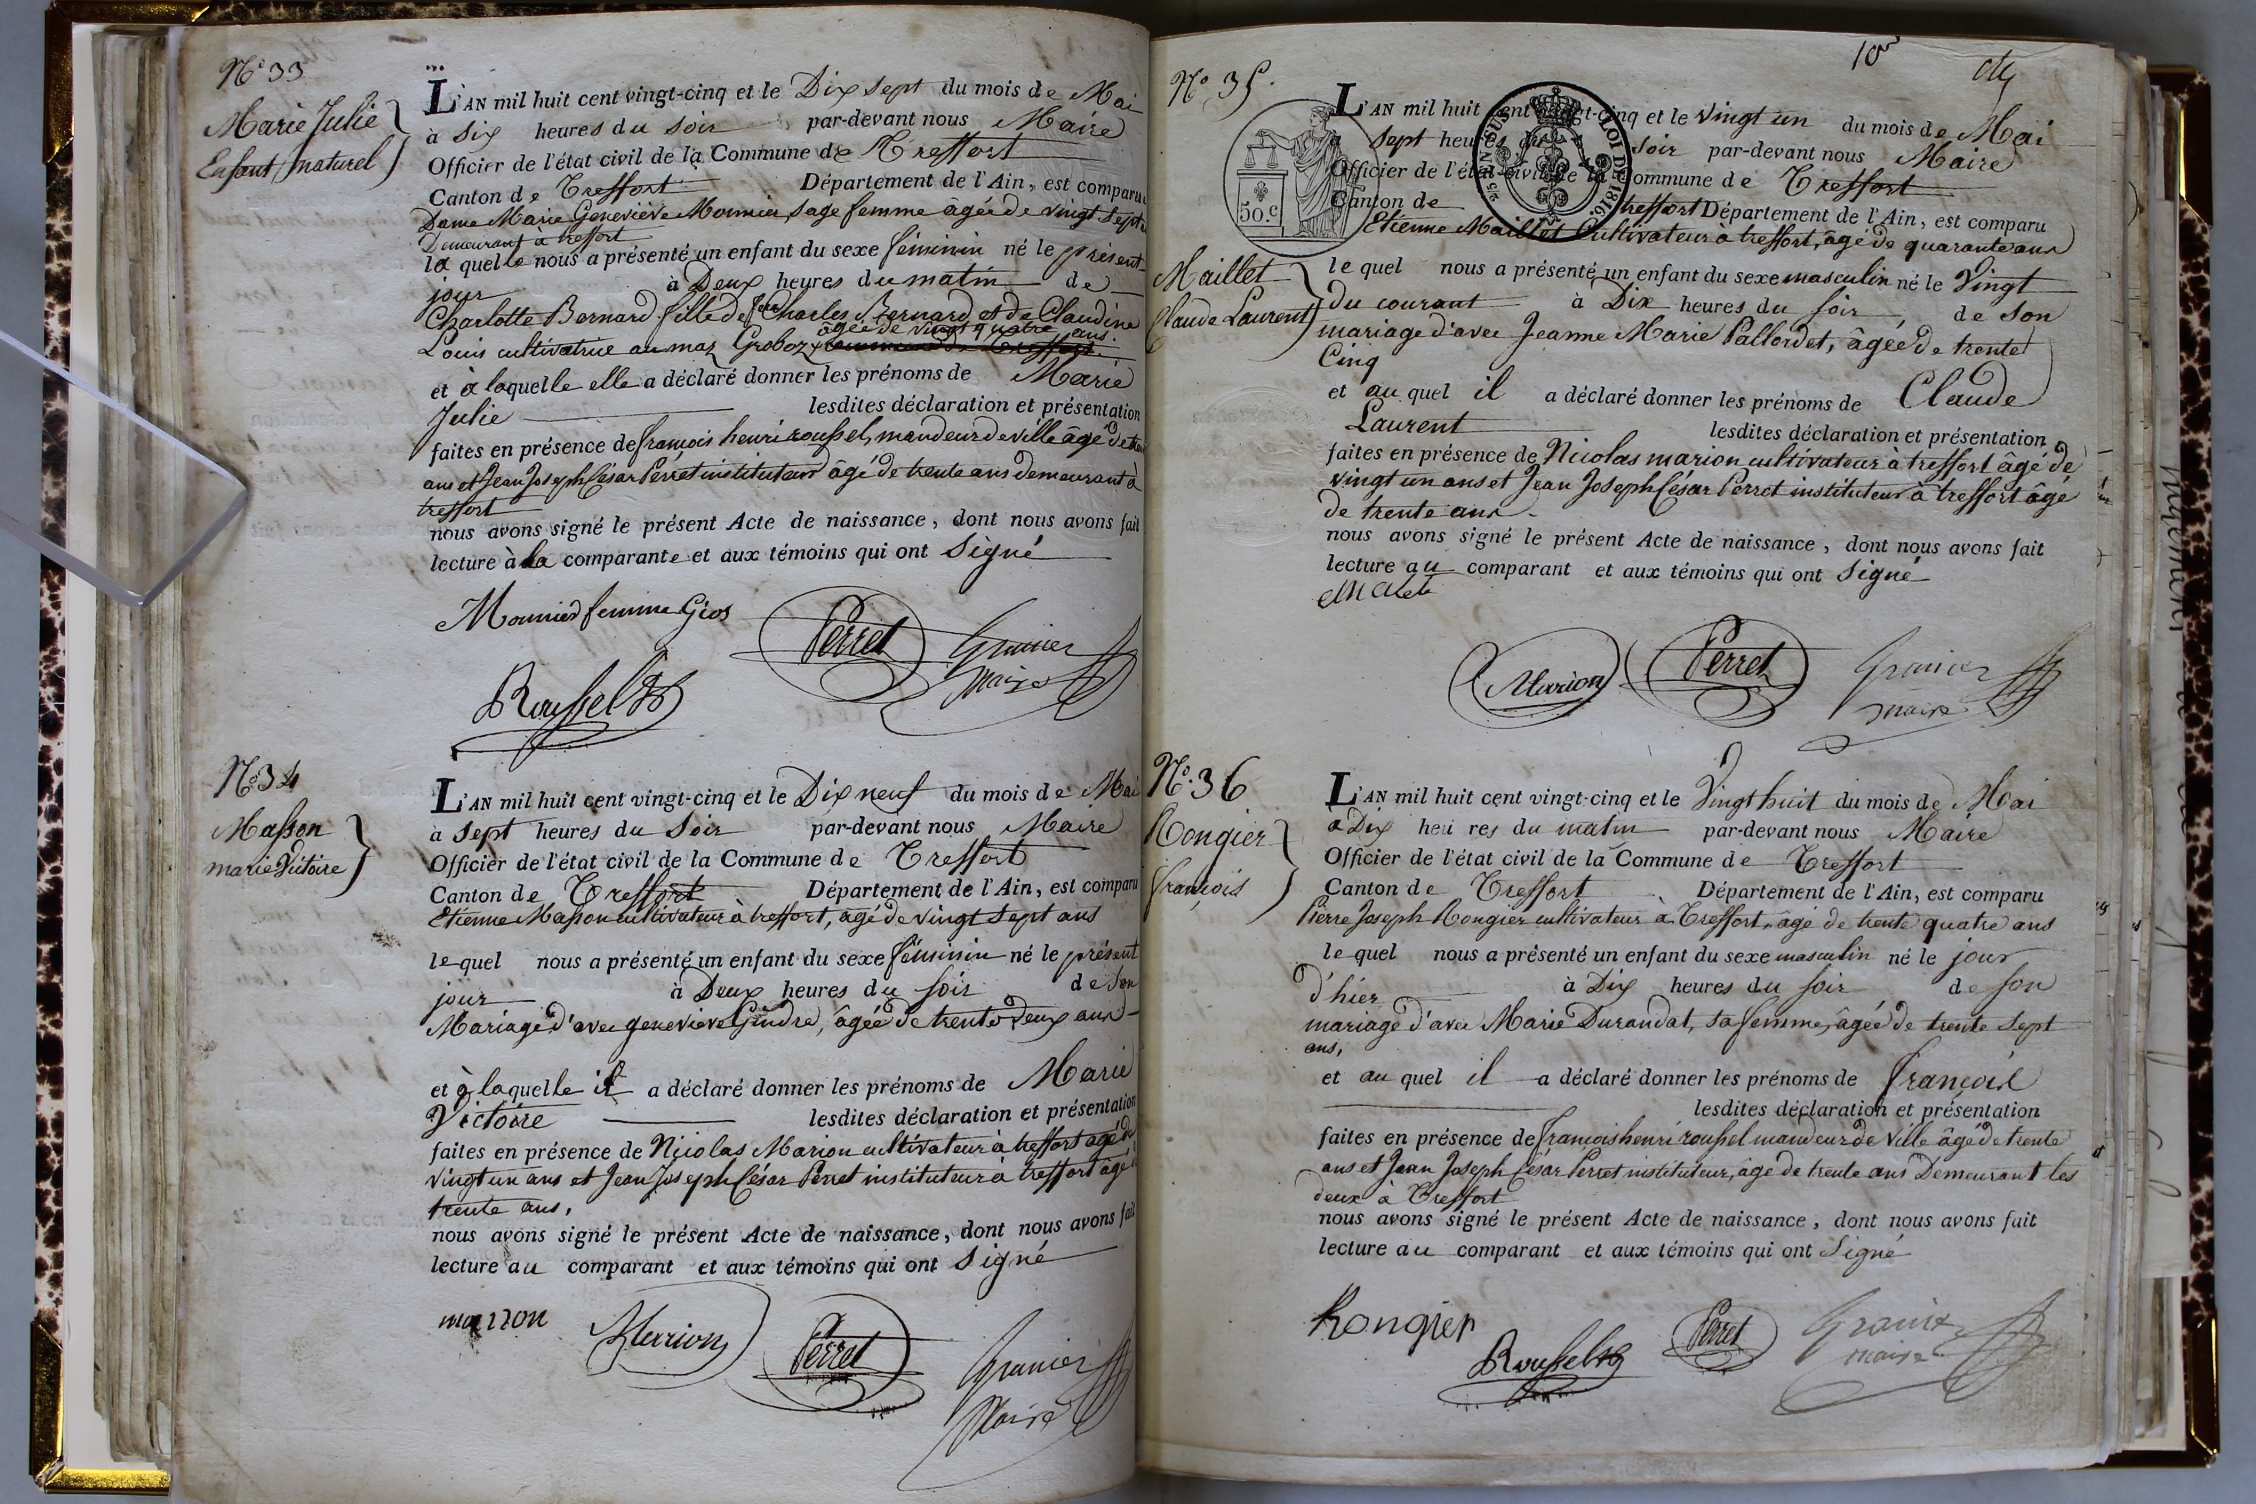 N.° 33
Marie Julie
Enfant naturel
L'AN mil huit cent vingt-cinq et le Dix sept du mois de Mai
à Six heures du Soir par-devant nous Maire
Officier de l'état civil de la Commune de Treffort
Canton de Treffort Département de l'Ain, est comparue
Dame Marie Geneviève Monnier, Sage femme âgée de vingt Sept
Demeurant à treffort
la quelle nous a présenté un enfant du sexe féminin né le présent
jour à Deux heures du matin de
Charlotte Bernard fille de feu Charles Bernard et de Claudine
âgée de vingt quatre ans.
Louis cultivatrice au maz Groboz
et à laquelle elle a déclaré donner les prénoms de Marie
Julie lesdites déclaration et présentation
faites en présence de françois henri roussel, mandeur de ville âgé de
ans et Jean Joseph César Perret instituteur âgé de trente ans demeurant à
treffort
nous avons signé le présent Acte de naissance, dont nous avons fait
lecture à la comparante et aux témoins qui ont Signé
Monnier femme Gios
Perret
Granier
maire
Roussel
N° 34
Masson
marie Victoire
L'AN mil huit cent vingt-cinq et le Dix neuf du mois de Mai
à Sept heures du Soir par-devant nous Maire
Officier de l'état civil de la Commune de Treffort
Canton de Treffort Département de l'Ain, est comparu
Etienne Masson cultivateur à treffort, âgé de vingt Sept ans
le quel nous a présenté un enfant du sexe féminin né le présent
jour à Deux heures du soir de Son
Mariage d'avec genevieve Gindre, âgée de trente Deux ans
et à laquelle il a déclaré donner les prénoms de Marie
Victoire lesdites déclaration et présentation
faites en présence de Nicolas Marion cultivateur à treffort âgé de
vingt un ans et Jean Joseph César Perret instituteur à treffort âgé
trente ans,
nous avons signé le présent Acte de naissance, dont nous avons fait
lecture au comparant et aux témoins qui ont Signé
Marion
Perret
Granier
Maire
10
N.° 35.
Maillet
Claude Laurent
50.c
LOI DE 1816.
L'AN mil huit cent vingt-cinq et le Vingt un du mois de Mai
sept heures du soir par-devant nous Maire
Officier de l'état civil de la Commune de Treffort
Canton de treffort Département de l'Ain, est comparu
Etienne Maillet Cultivateur à treffort, âgé de quarante ans
le quel nous a présenté un enfant du sexe masculin né le Vingt
du courant à Dix heures du soir, de son
mariage d'avec Jeanne Marie Pallordet, âgée de trente
Cinq
et au quel il a déclaré donner les prénoms de Claude
Laurent lesdites déclaration et présentation
faites en présence de Nicolas marion cultivateur à treffort âgé de
vingt un ans et Jean Joseph César Perret instituteur à treffort âgé
de trente ans.
nous avons signé le présent Acte de naissance, dont nous avons fait
lecture au comparant et aux témoins qui ont Signé
Marion
Perret
Granier
maire
N.° 36
Rongier
françois
L'AN mil huit cent vingt-cinq et le Vingt huit du mois de Mai
à Dix heures du matin par-devant nous Maire
Officier de l'état civil de la Commune de Treffort
Canton de Treffort Département de l'Ain, est comparu
Pierre Joseph Rongier cultivateur à Treffort, âgé de trente quatre ans
le quel nous a présenté un enfant du sexe masculin né le jour
d'hier à Dix heures du soir de son
mariage d'avec Marie Durandat, sa femme, âgée de trente Sept
ans,
et au quel il a déclaré donner les prénoms de François
lesdites déclaration et présentation
faites en présence de françois henri roussel mandeur de Ville âgé de trente
ans et Jean Joseph César Perret instituteur, âgé de trente ans Demeurant les
deux à Treffort
nous avons signé le présent Acte de naissance, dont nous avons fait
lecture au comparant et aux témoins qui ont Signé
Rongier
Roussel
Perret
Granier
maire